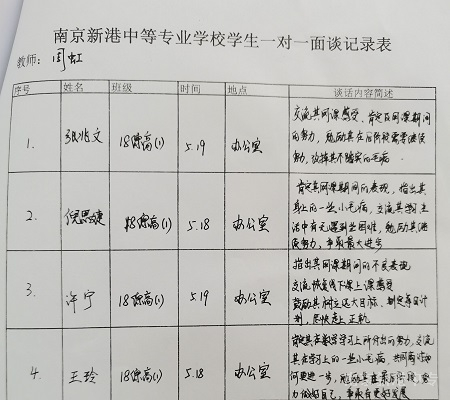 南京新港中等专业学校学生一对一面谈记录表
教师：闫虹
序号 姓名 班级 时间 地点 谈话内容简述
1. 张兆文 18综高(1) 5.19 办公室
交流其网课感受、肯定网课期间
的努力，勉励其在后阶段需要继续
努力，改掉其不踏实的毛病．
2. 倪思婕 18综高(1) 5.18 办公室
肯定其网课期间的表现，指出其
身上的一些小毛病，交流其学习生
活中有无遇到些困难，勉励其继
续努力，争取最大进步
3. 许宁 18综高(1) 5.19 办公室
指出其网课期间的不良表现
交流恢复线下课上课感受
鼓励其树立远大目标、制定每日计
划，尽快走上正轨
4. 王玲 18综高(1) 5.18 办公室
肯定其在学习上所付出的努力，交流
其在学习上的一些小毛病，共同商讨如
何更进一步，勉励其在最后阶段努
力做好自己，争取有更好发展